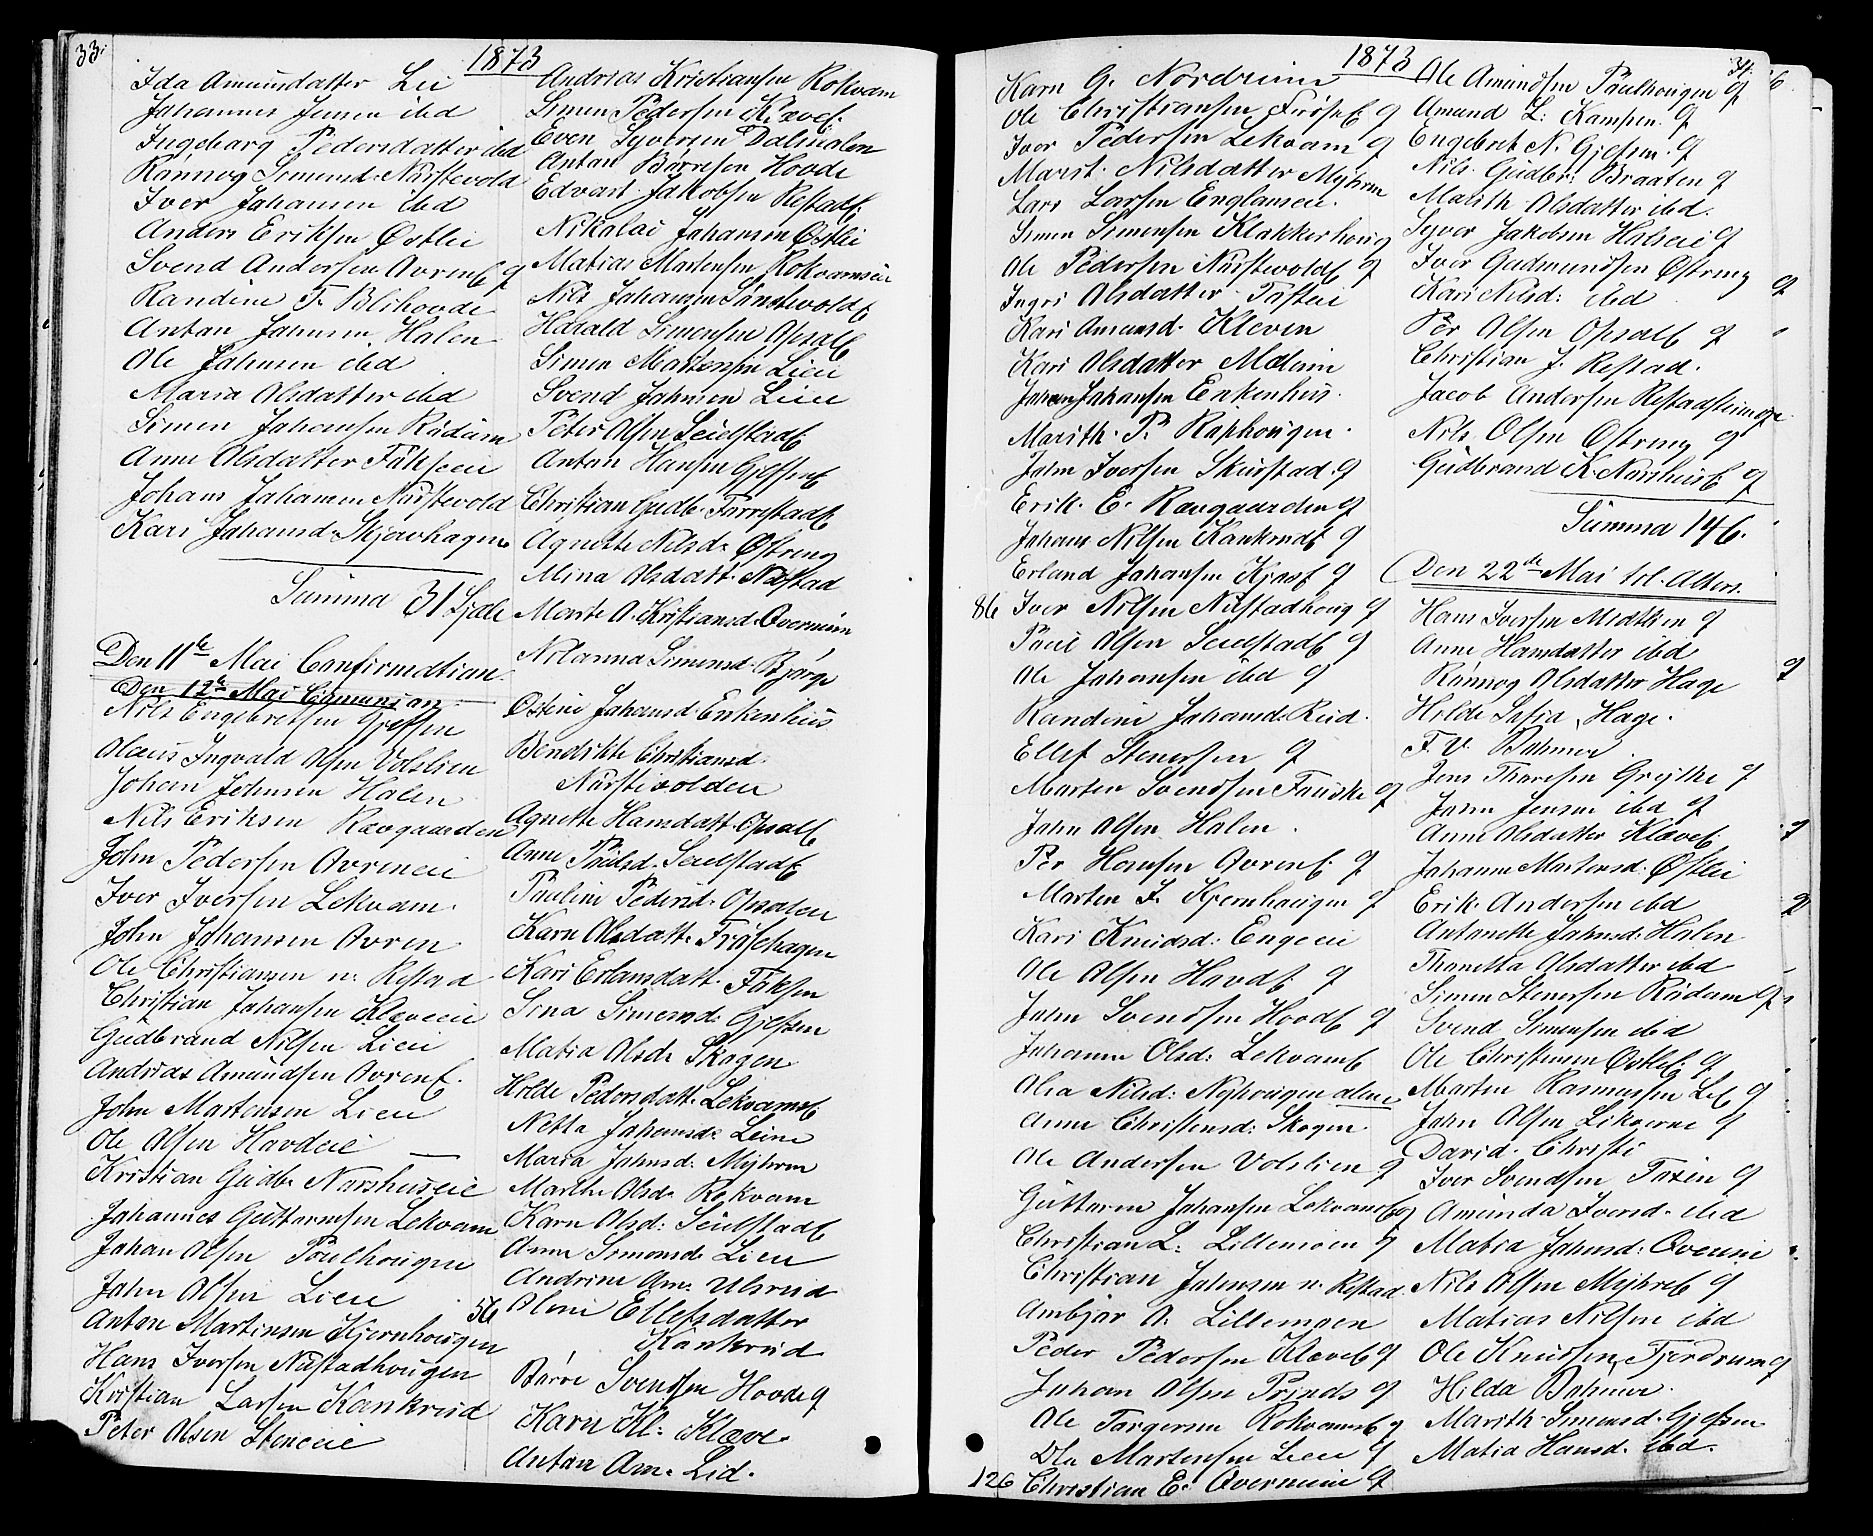 33.
1873
Ida Amunsdatter Lii
Johannes Jensen ibd
Ingeborg Pedersdatter ibd
Rønnog Simensd. Nustevold
Iver Johansen ibd
Anders Eriksen Østlii
Svend Andersen Avrenf g
Randine T. Blihovde
Anton Johnsen Halen
Ole Johnsen ibd
Maria Olsdatter ibd
Simen Johansen Rudum
Anne Olsdatter Fukseie
Johans Johansen Nustevold
Kari Johansd. Skjerhagen
Summa 31 Sjæle
Den 11te Mai Confirmation
Den 12te Mai Comunion
Nils Engebretsen Gjefsen
Olaus Ingvald Olsen Volslien
Johan Johnsen Halen
Nils Eriksen Rævgaarden
John Pedersen Avreneie
Iver Iversen Lekvam
John Johansen Avren
Ole Christiansen n. Refstad
Christian Johansen Kleveeie
Gudbrand Nilsen Lieie
Andrias Amundsen Avrenf.
John Martensen Lieie
Ole Olsen Havdeie
Kristian Gudb. Narshuseie
Johannes Guttormsen Lekvam
Johan Olsen Poulhougen
John Olsen Lieie
Anton Martinsen Kjernhougen
Hans Iversen Nustadhougen
Kristian Larsen Kankrud
Peter Olsen Steneeie
Andrias Kristiansen Rokvam
Simen Pedersen Klævef.
Even Syversen Dalsialen
Anton Børresen Hovde
Edvart Jakobsen Refstadf.
Nikolai Johansen Østlii
Matias Martensen Rokvamseie
Nils Johansen Nustevoldf
Harald Simensen Opsalf
Simen Martensen Lieie
Svend Johnsen Lieie
Peter Olsen Seielstadf
Anton Hansen Gjefsenf
Christian Gudb. Forrestadf
Agnethe Nilsd. Østreng
Mina Olsdatt. Nustad
Marte A. Kristiansd. Overmoin
Nilanna Simensd. Bjørge
Østine Johansd. Enkenhus
Bendikte Christiansd.
Nustivolden
Agnethe Hansdatt. Opsalf
Anne Paulsd. Seielstadf
Pauline Pedersd. Opsalen
Karn Olsdatt. Frøsehagen
Kari Erlansdatt. Fuksen
Sina Simensd. Gjefsen
Matia Olsd. Skogen
Hilde Pedersdatt. Lekvamf
Netta Johansd. Leine
Maria Johnsd. Myhren
Marthe Olsd. Rokvam
Karn Olsd. Seielstadf
Anne Simensd. Lieie
Andrine Am. Ulsrud
56 Oline Ellefsdatter
Kankrud
Børre Svendsen Hovde g
Karn Kl: Klæve
Anton Am. Lid.
1873
34.
Karn G. Nordrum
Ole Christiansen Frøsef g
Iver Pedersen Lekvam g
Marit Nilsdatter Myhren
Lars Larsen Englanseie.
Simen Simensen Klokkerhoug
Ole Pedersen Nustevoldf g
Ingri Olsdatter Tofteie
Kari Amunsd. Kleven
Kari Olsdatter Moeinn
Johan Johansen Enkenhus.
Marith P. Raphougen.
John Iversen Skurstad. g
Erik. E. Rævgaarden g
Johans Nilsen Kankrudf g
Erland Johansen Kjosf g
86 Iver Nilsen Nustadhoug g
Paul Olsen Seielstadf g
Ole Johansen ibd g
Randine Johansd. Rud.
Ellef Stenersen g
Marten Svendsen Fauske g
John Olsen Halen.
Per Hansen Avrenf. g
Marten J. Kjernhougen g
Kari Knudsd. Engeeie
Ole Olsen Havdf. g
John Svendsen Hovdf g
Johanne Olsd: Lekvamf
Olia Nilsd: Nyhougen alene
Anne Christensd: Skogen.
Ole Andersen Volslien g
Guttorm Johansen Lekvamf g
Christian L: Lillemoen g
Christian Johnsen n. Refstad
Ambjør O. Lillemoen
Peder Pedersen Klævef g
Johan Olsen Prinds g
Ole Torgersen Rokvamf g
Ole Martensen Lieie g
126 Christian E. Overmoin g
Ole Amundsen Paulhougen g
Amund L: Kampen. g
Engebret N. Gjefsen. g
Nils Gudbr: Braaten g
Marith Olsdatter ibd.
Syver Jakobsen Halseie g
Iver Gudmundsen Østreng
Kari Nilsd: ibd g
Per Olsen Opsalf g
Christian J. Refstad.
Jacob Andersen Refstadseie
Nils Olsen Østreng g
Gudbrand K. Narshusf g
Summa 146.
Den 22de Mai til Alters.
Hans Iversen Midtlien g
Anne Hansdatter ibd
Rønnog Olsdatter Hage g
Hilde Sofia Hage.
F. V. Bøhmer.
Jens Thoresen Grythe g
John Jensen ibd g
Anne Olsdatter Klævef
Johanne Martensd: Østlii
Erik Andersen ibd g
Antonette Johnsd: Halen
Thonetta Olsdatter ibd
Simen Stenersen Rudum g
Svend Simensen ibd
Ole Christiansen Østlif g
Marten Rasmussen Lif g
John Olsen Likverne g
David. Christi
Iver Svendsen Toxen g
Amunda Ivend. ibd
Matia Johnsd: Overmoie
Nils Olsen Myhref g
Matias Nilsen ibd
Ole Knudsen Fjerdrum g
Hilda Bøhmer.
Marith Simensd. Gjefsen
Matia Hansd. ibd.